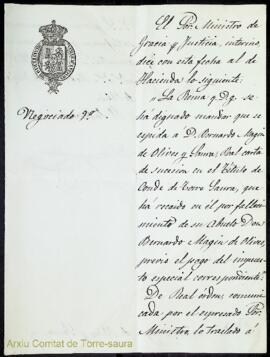 El Sor. Ministro de
Gracia y Justicia, interino,
dice con esta fecha al de
Hacienda lo siguiente:
"La Reina q. D. g. se
ha dignado mandar que se
expida a D. Bernardo Magin
de Olives y Saura, Real carta
de sucesion en el Título de
Conde de Torre Saura, que
ha recaido en él por falleci
miento de su Abuelo Don
Bernardo Magin de Olives,
previo el pago del impuesto
especial correspondiente."
De Real órden comuni
cada por el expresado Sor.
Ministro, lo traslado á
Negociado 7º
Arxiu Comtat de Torre-saura